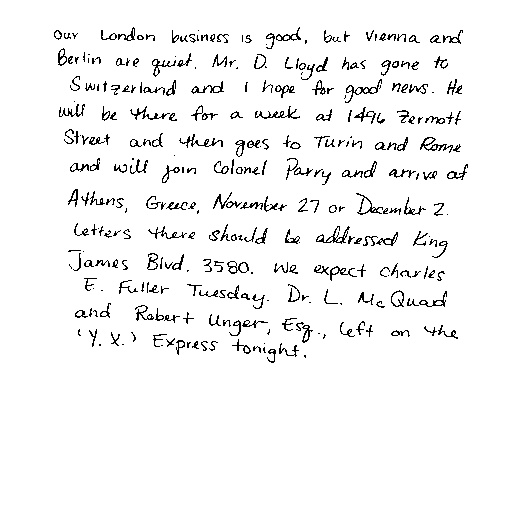 our London business is good, but Vienna and
Berlin are quiet. Mr. D. Lloyd has gone to
Switzerland and I hope for good news. He
will be there for a week at 1496 Zermott
Street and then goes to Turin and Rome
and will join Colonel Parry and arrive at
Athens, Greece, November 27 or December 2.
Letters there should be addressed King
James Blvd. 3580. We expect Charles
E. Fuller Tuesday. Dr. L. McQuad
and Robert Unger, Esq., left on the
'Y.X.' Express tonight.